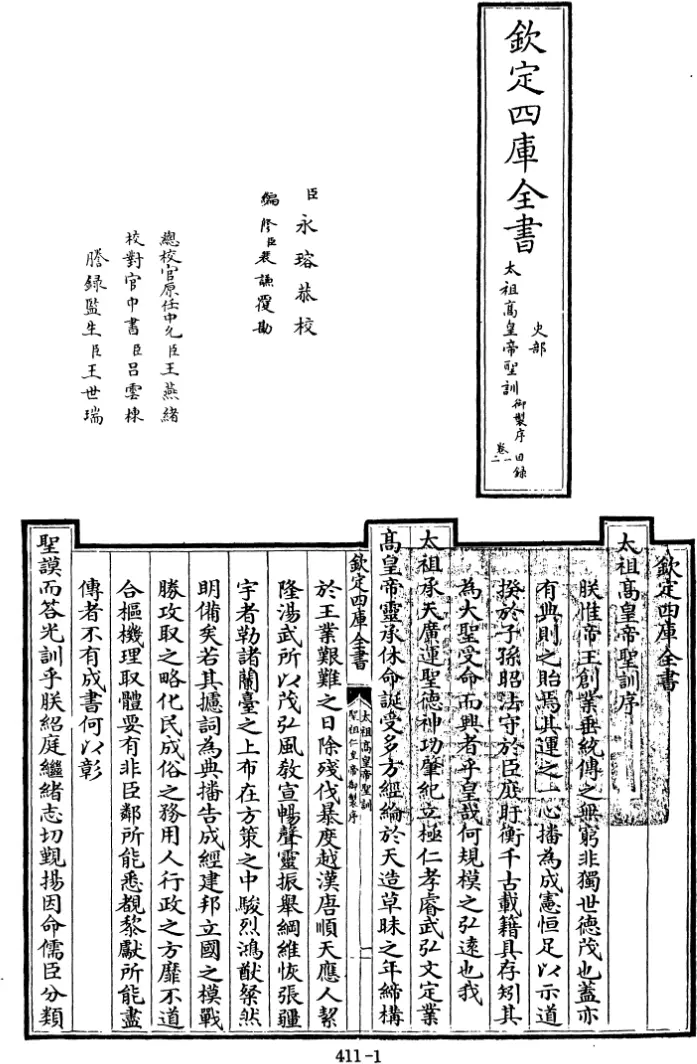 欽定四庫全書
史部
太祖高皇帝聖訓
御製序 目録
卷一
二
臣永瑢恭校
編修臣裴謙覆勘
總校官原任中允臣王燕緒
校對官中書臣呂雲棟
謄録監生臣王世瑞
欽定四庫全書
太祖高皇帝聖訓序
朕惟帝王創業垂統傳之無窮非獨世德茂也蓋亦
有典則之貽焉其運之一心播為成憲恒足以示道
揆於子孫昭法守於臣庶盱衡千古載籍具存矧其
為大聖受命而興者乎皇哉何規模之弘遠也我
太祖承天廣運聖德神功肇紀立極仁孝睿武弘文定業
高皇帝靈承休命誕受多方經綸於天造草昧之年締構
欽定四庫全書
太祖高皇帝聖訓
聖祖仁皇帝御製序
一
於王業艱難之日除殘伐暴度越漢唐順天應人絜
隆湯武所以茂弘風教宣暢聲靈振舉綱維恢張疆
宇者勒諸蘭臺之上布在方策之中駿烈鴻猷粲然
明備矣若其攄詞為典播告成經建邦立國之模戰
勝攻取之略化民成俗之務用人行政之方靡不道
合樞機理取體要有非臣鄰所能悉覩黎獻所能盡
傳者不有成書何以彰
聖謨而答光訓乎朕紹庭繼緒志切覲揚因命儒臣分類
411-1